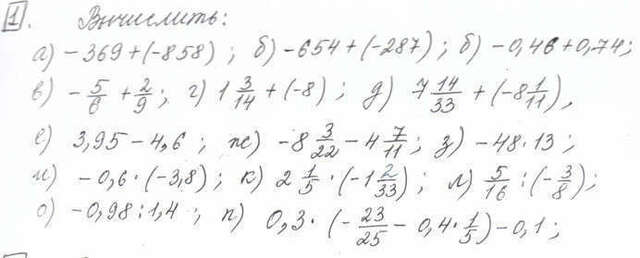 1. Вычислить:
а) -369+(-858); б) -654+(-287); б) -0,46+0,74;
в) -5/6 + 2/9; г) 1 3/14 + (-8); д) 7 14/33 + (-8 1/11),
е) 3,95-4,6; ж) -8 3/22 - 4 7/11; з) -48·13;
и) -0,6·(-3,8); к) 2 1/5 · (-1 2/33); л) 5/16 : (-3/8);
о) -0,98:1,4; п) 0,3·(-23/25 - 0,4·1/5)-0,1;